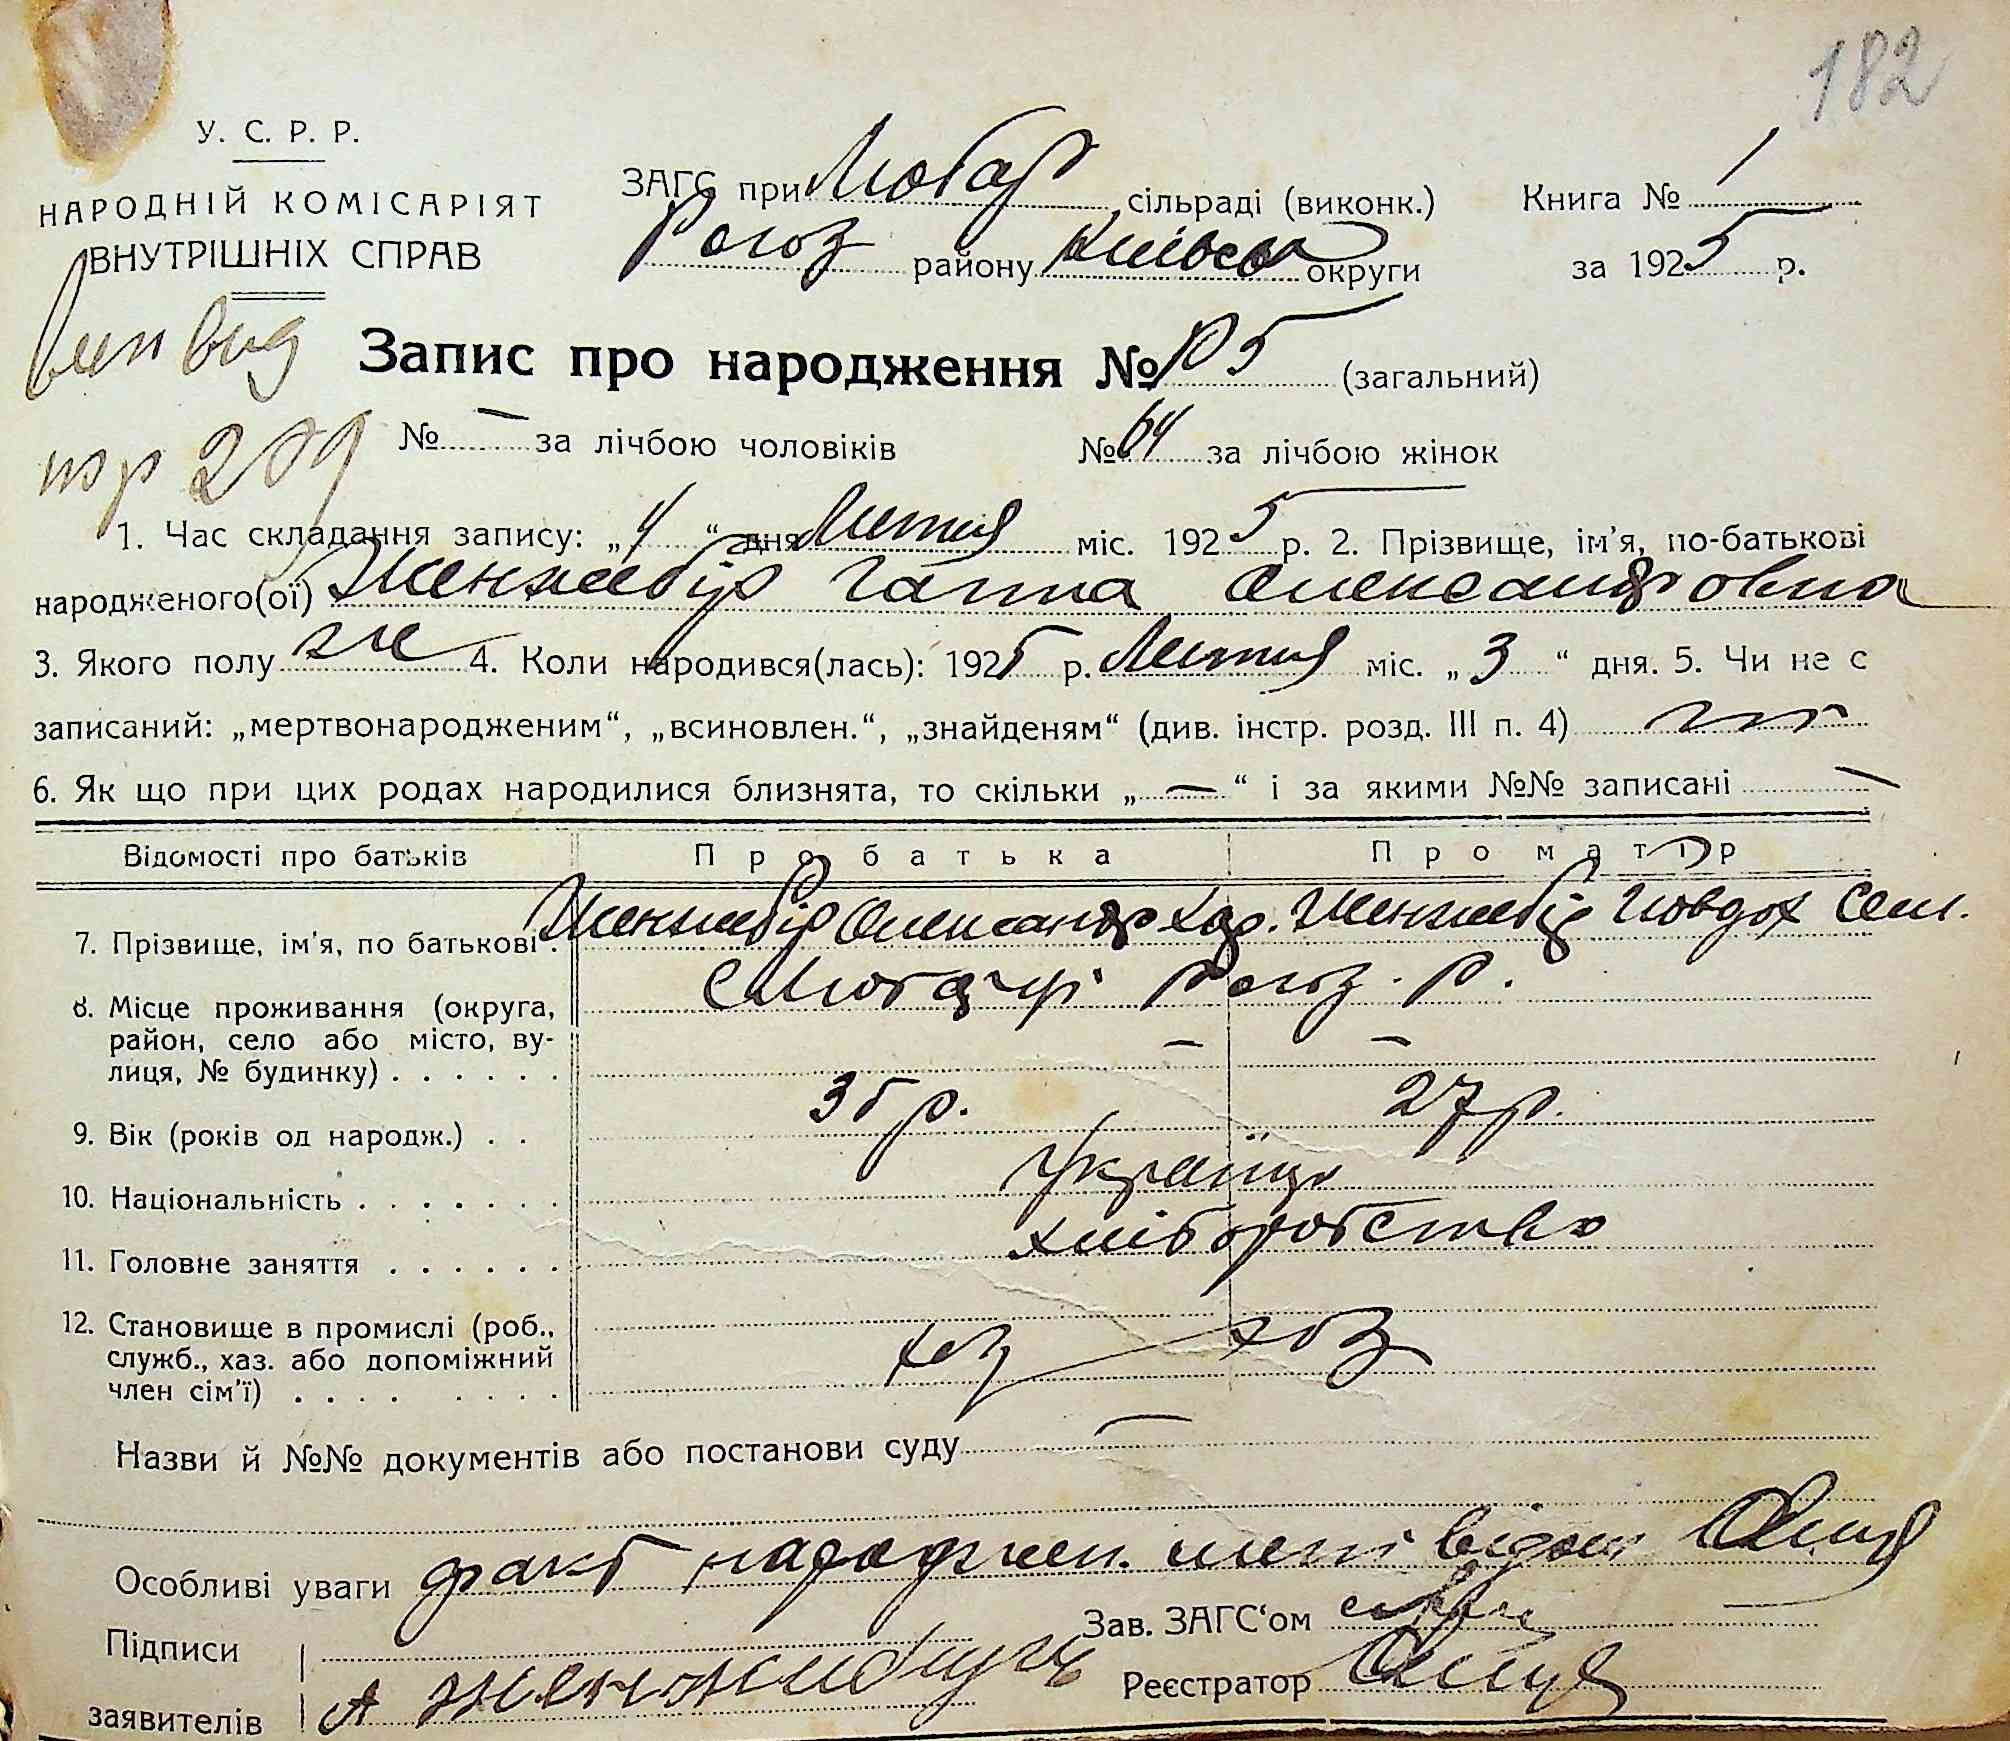 182
У. С. Р. Р.
НАРОДНІЙ КОМІСАРІЯТ
ВНУТРІШНІХ СПРАВ
ЗАГС при Любар сільраді (виконк.)
Рогоз району Київсь округи
Книга № 1
за 1925 р.
Запис про народження № 85 (загальний)
№ — за лічбою чоловіків № 64 за лічбою жінок
1. Час складання запису: „4“ дня Лютия міс. 1925 р. 2. Прізвище, ім'я, по-батькові
народженого(ої) Женжебір Ганна Олександровна
3. Якого полу же 4. Коли народився(лась): 1925 р. Лютия міс. „3“ дня. 5. Чи не є
записаний: „мертвонародженим“, „всиновлен.“, „знайденям“ (див. інстр. розд. III п. 4)
6. Як що при цих родах народилися близнята, то скільки „—“ і за якими №№ записані —
Відомості про батьків Про батька Про матір
7. Прізвище, ім'я, по батькові . Женжебір Олександр Хар. Женжебір Овдох Сем.
8. Місце проживання (округа, с Любарці Рогоз. р.
район, село або місто, ву-
лиця, № будинку) . . . . . . — —
9. Вік (років од народж.) . . 35 р. 27 р.
10. Національність . . . . . . . Україці
11. Головне заняття . . . . . . хліборобство
12. Становище в промислі (роб.,
служб., хаз. або допоміжний хоз хоз
член сім'ї) . . . . . . . .
Назви й №№ документів або постанови суду —
Особливі уваги факт народжен. мені відом
Зав. ЗАГС'ом
Підписи
заявителів А Женжибиръ
Реєстратор